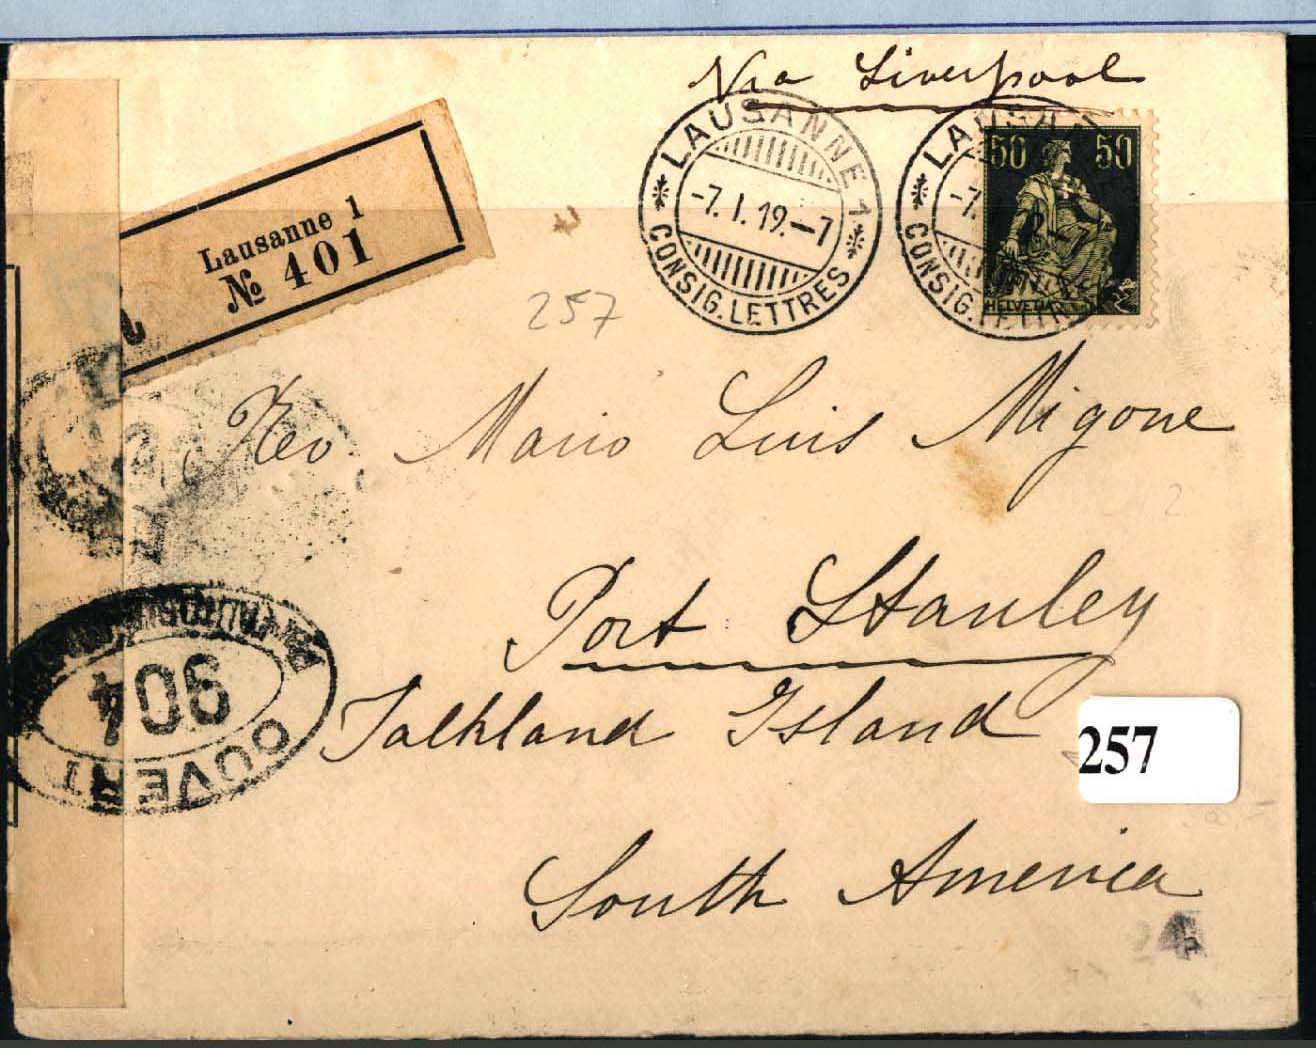 Via Liverpool
LAUSANNE 1
-7.I.19.-7
CONSIG. LETTRES
LAUSAN
-7.
CONSIG. LETTRES
50 50
HELVETIA
Lausanne 1
№ 401
257
Rev. Mario Luis Migone
2
Port Stanley
Falkland Island
South America
257
OUVERT
904